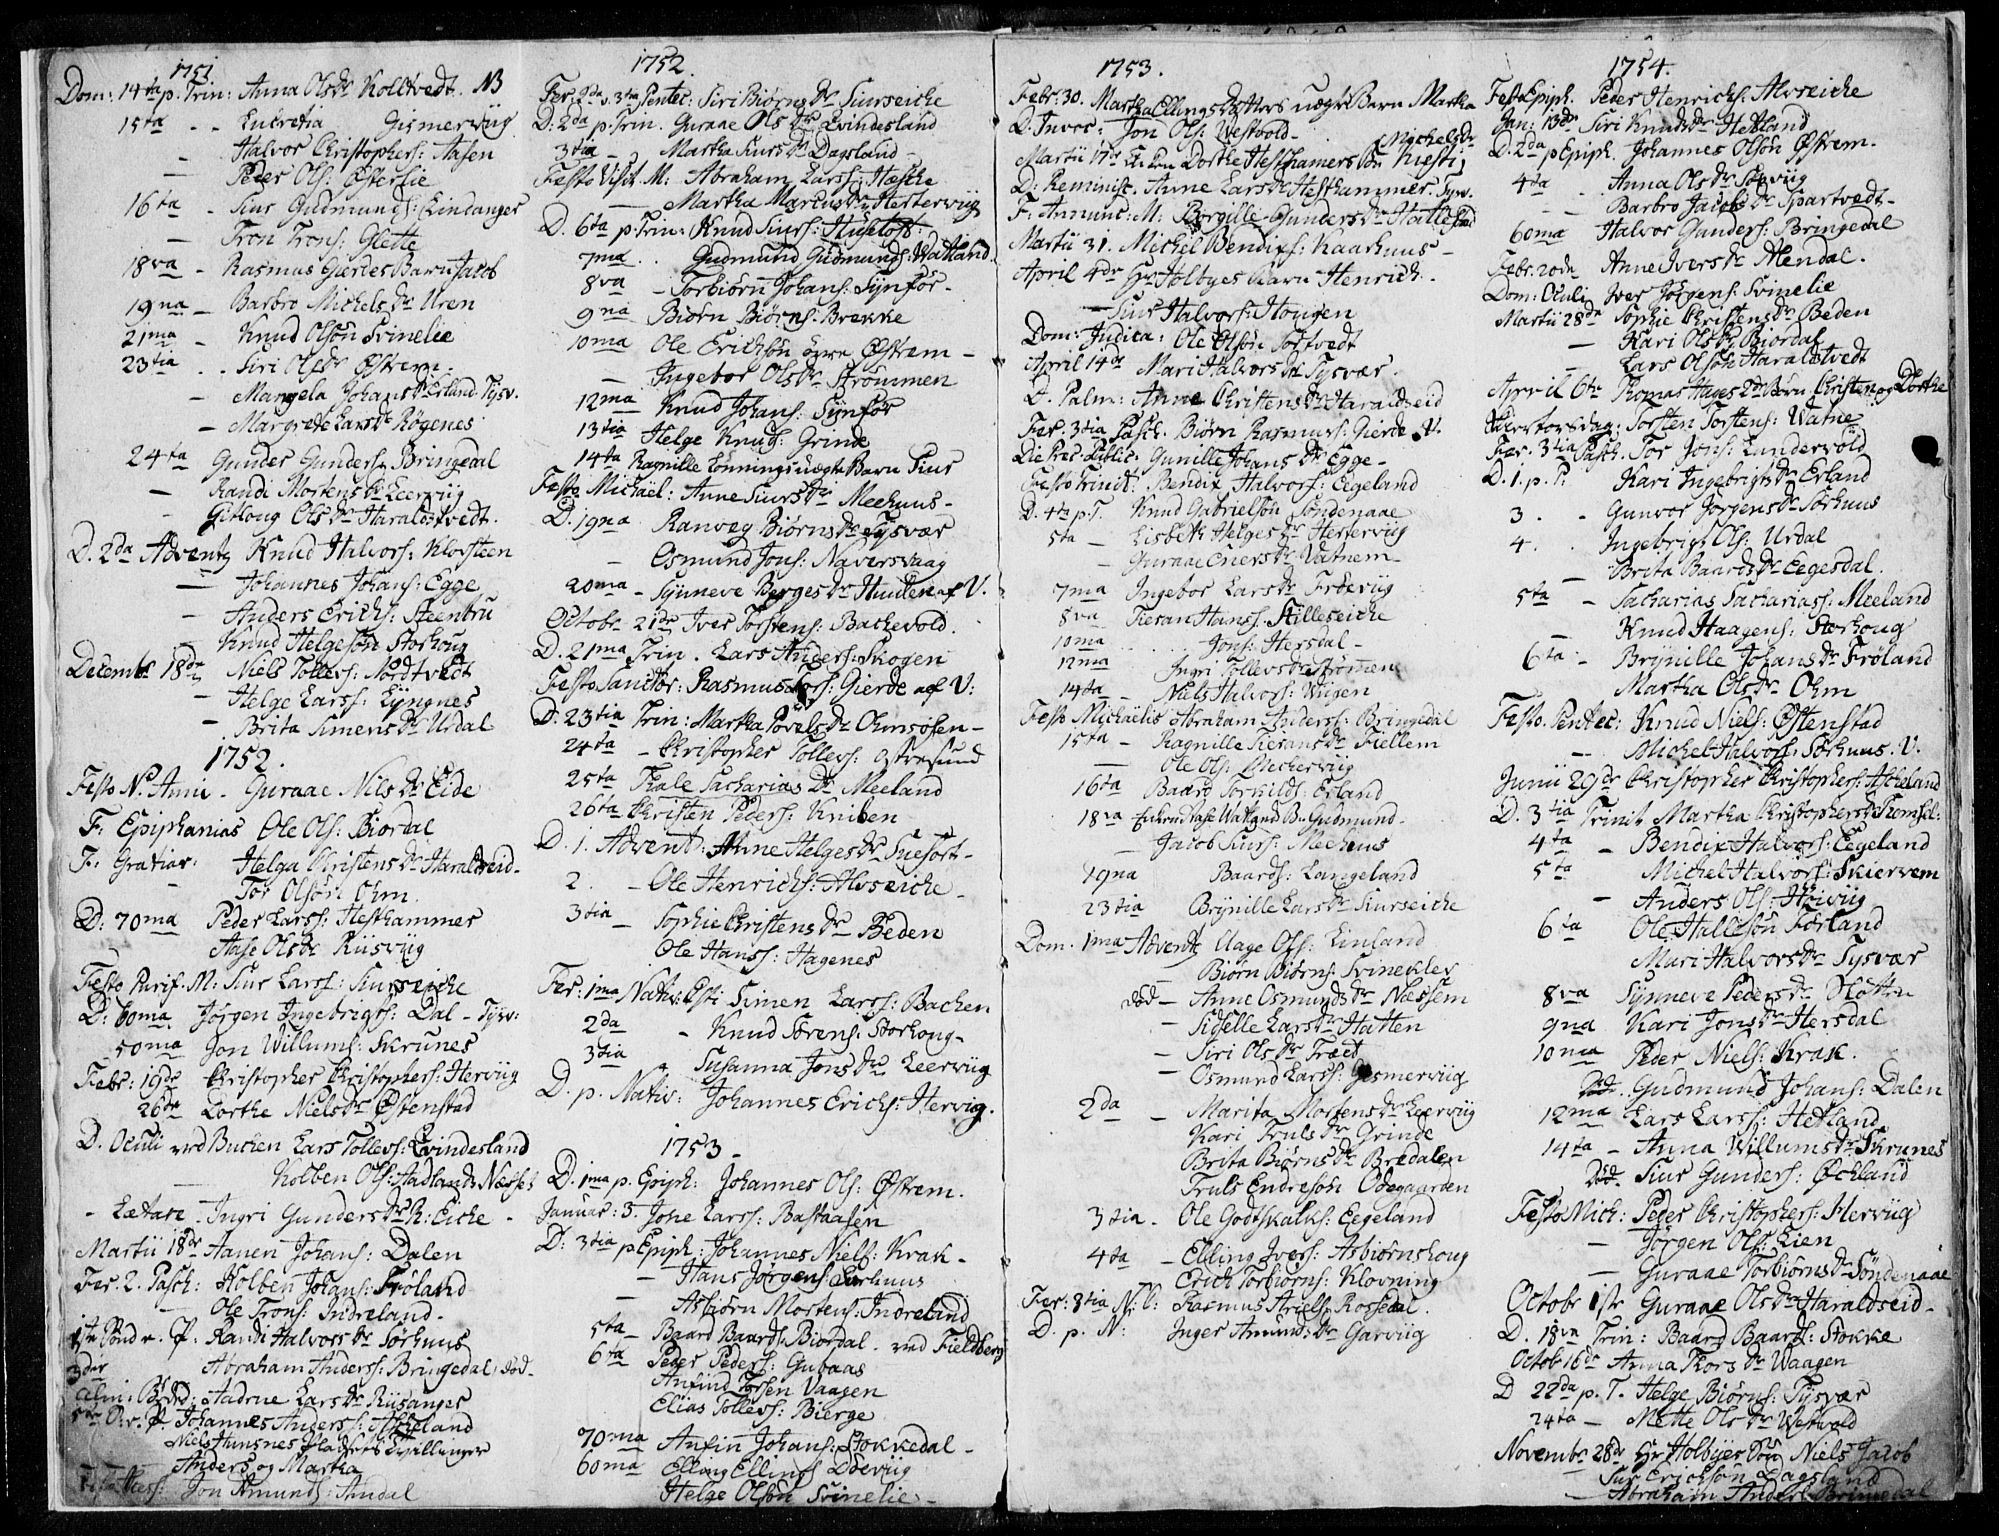 1751.
Dom: 14ta p. Trin: Anna Olsdr Kolltvedt. NB
15ta - - Lucretia Gismerviig
— Halvor Christophers: Aasen
— Peder Ols: Østerlie
16ta - Siur Gudmunds: Lindanger
— Tron Trons: Glette
18va - Rasmus Gierdes Barn Jacob
19na - Barbro Michelsdr Uren
21ma - Knud Olsøn Svinelie
23tia . . Siri Olsdr Østrem.
- Mangela Johansdr Erland. Tysv.
- Margrete Larsdr Røgenes
24ta Gunder Gunders: Bringedal
— Randi Mortensdr Leerviig
— Gitloug Olsdr Haraldstvedt.
D. 2da Advent Knud Halvors: Klovsteen
— Johannes Johans: Egge
— Anders Erichs: Steenbru
— Knud Helgesøn Storhoug
Decembr 18de Niels Tollevs: Nordtvedt
— Helge Larss: Lyngnes
— Brita Simensdr Urdal
1752.
Festo N. Anni - Guraae Nilsdr Eide
F: Epiphanias Ole Ols: Biordal
F: Gratiar: Helga Christensdr Haraldseid.
- Tor Olsøn Ohm.
D: 70ma Peder Larss: Hesthammer
Aase Olsdr Riisviig
Festo Purif. M: Siur Larss: Siurseiche
D: 60ma Jørgen Ingebrigts: Dal - Tysv:
50ma Jon Willums: Skrunes
Febr: 19de Christopher Christophers: Herviig
26de Dorthe Nielsdr Østenstad
D. Oculi ved Bucken Lars Tollevs: Qvindesland
— Kolben Ols: Hadland Næsset
- Lætare - Ingri Gundersdr R: Eiche -
Martii 18de Aanen Johans: Dalen
Fer. 2. Pasch: Kolben Johans: Frøland
— Ole Trons: Indreland.
1ste Bønd e. P. Randi Halvorsdr Sørhuus
3der Abraham Anders: Bringedal, død.
Alm: Beded: Aadrue Larsdr Riisanger
5te S. e. P. Johannes Anders: Asheland
Niels Hunsnes Pladsets Tvillinger
Anders og Martha
Jon Amunds: Amdal
1752.
Fer. 2da v. 3tia Pentec: Siri Biørnsdr Siurseiche
D: 2da p. Trin. Guraae Olsdr Qvindesland
3tia - Martha Siursdr Dagsland -
Festo Visit. M: Abraham Larss: Hæsche
— Martha Marcusdr Hertervüg
D. 6ta p. Trin: Knud Siurs: Huseløst:
7ma . . Gudmund Gudmunds: Watland.
8va - Torbiørn Johans: Synfør.
9na Biørn Biørns: Brekke
10ma Ole Erichsøn øvre Østrem -
— Ingebor Olsdr Strømmen
12ma Knud Johans: Synfør
13tia Helge Knuds: Grinde
14ta Ragnille Lønnings uægte Barn Siur
Festo Michaël: Anne Siursdr Meehuus-
D. 19na Ranveg Biørnsdr Tysvær
- Osmund Jons: Naversvaag
20ma - Synneve Børgesdr Hunden af V.
Octobr 21de Iver Torstens: Bachevold.
D. 21ma Trin. Lars Anders: Skogen
Festo Sanctor: Rasmus Tors: Gierde af V:
D. 23tia Trin: Martha Povelsdr Ohmsosen -
24ta - Christopher Tollevs: Ostresund
25ta Thale Sacharias Dr Meeland
26ta Christen Peders: Kniben
D. 1. Advent: Anne Helgesdr Suesort-
2. - Ole Henrichs: Alvseiche -
3tia - Sophie Christensdr Beden
Ole Hanss: Hagenes
Fer: 1ma Nativ: Xsti Simen Larss: Bachen
2da - Knud Sørens: Storhoug-
3tia - Susanna Jonsdr Leerviig
D. p. Nativ: Johannes Erichs: Hervig.
1753 -
D. 1ma p. Epiph: Johannes Ols: Østrem.
Januar: 3. Jone Larss: Bastaasen
D: 3tia p Epiph: Johannes Niels: Krak -
— Hans Jørgens: Larhuus
— Asbiørn Mortens: Indreland
5ta - Baard Baards: Biordal. ved Fieldberg
6ta Peder Peders: Gubaas
Anfind Torsen Vaagen
Elias Tollevs: Bierge
70ma Anfin Johans: Stokkedal -
60ma Elling Ellings Døeviig
Helge Olsøn Svinelie -
1753.
Febr: 30. Martha Ellingsdotters uægte Barn Martha
D. Invoc: Jon Ols: Westvold - Michelsdr
Martii 17de Dorthe Hesthamers Bn Kiesti
D: Reminisc. Anne Larsdr Hesthammer. Tysv.
F: Annunc: M: Borgille Gundersdr Hatteland
Martii 31. Michel Bendixs: Kaarhuus -
April 4de Hr Holbyes Barn Henrich.
— Siur Halvors: Hougen
Dom: Judica: Ole Olsøn Tortvedt
April 14de Mari Halvorsdr Tysvær.
D. Palm: Anne Christensdr Haraldseid
Fer: 3tia Pasch. Biørn Rasmus: Gierde V.
Die Prec. Public: Gunille Johansdr Egge -
Festo Trinit: Bendix Halvors: Eegeland
D. 4ta p. T. Knud Gabrielsøn Søndenaae
5ta - Lisbeth Helgesdr Hertervüg
- Guraae Enersdr Vatnem
7ma Ingebor Larsdr Frøeviig
8va Tieran Hanss: Stilleseiche
10ma . . . . Jons: Hersdal -
12ma Ingri Tollevsdr Strømen
14ta - Niels Halvors: Wiigen
Festo Michaëlis Abraham Anderss: Bringedal
15ta - Ragnille Tieransdr Fiellem
— Ole Ols: Beckerviig
16ta Baard Torkilds: Erland
18va Watland Bn Gudmund -
— Jacob Siurs: Meehuus
19na Baards: Langeland
23tia Brynille Larsdr Siurseiche
Dom. 1ma Advent: Aage Ols: Linland
Biørn Biørns. Svinekler
død - Anne Osmundsdr Næssem
- Sidselle Larsdr Hatten
- Siri Olsdr Træet
- Osmund Larss: Gismerviig
2da - Marita Mortensdr Leerviig
Kari Trulsdr Grinde
Brita Biørnsdr Bredalen
Truls Endresøn Odegaarden
3tia - Ole Godtskalks: Eegeland
4ta - Elling Ivers: Asbiørnshoug
Erich Torbiørns: Klovning
Fer: 3tia N: C: Rasmus Ariels: Rossedal.
D. p. N: Inger Amundsdr Garviig
1754.
Fest Epiph. Peder Henrichs: Alvseiche
Jan: 13de Siri Knudsdr Hetland
D. 2da p Epiph. Johannes Olsøn Østrem.
4ta Anna Olsdr Solviig
- - Barbro Jacobsdr Spartvedt -
60ma Halvor Gunders: Bringedal
Febr: 20de Anne Iversdr Alendal.
Dom: Oculi Iver Jørgens: Svinelie
Martii 28de Sophie Christensdr Beden
- Kari Olsdr Biordal
- Lars Olsøn Haraldstvedt
April 6te Thomas Hages 2de Børn Christen og Dorthe
Skiertorsdag: Torsten Torstens: Watne
Fer: 3tia Pasch. Tor Jons: Lundervold
D. 1. p. P: Kari Ingebrigtsdr Erland
3. . Gunvor Jørgensdr Sørhuus
4. . Ingebrigt Ols: Urdal
- Brita Baardsdr Eegesdal.
5ta - Sacharias Sachariass: Meeland
- Knud Haagens: Storhoug
6ta - Brynille Johansdr Frøland
Martha Olsdr Ohm
Festo. Pentec: Knud Niels: Østenstad
— Michel Halvors: Sørhuus. V.
Junii 29de Christopher Christophers: Asheland
D. 3tia Trinit Martha Christophersdr Tromsel:
4ta - Bendix Halvors: Eegeland
5ta Michel Halvors: Skiervem
- Anders Ols: Høiviig
6ta Ole Hallesøn Førland
Mari Halvorsdr Tysvær
8va Synneve Pedersdr Slotten
9na Kari Jonsdr Hersdal
10ma Peder Niels: Krak.
Død. Gudmund Johans: Dalen
12ma Lars Larss: Hetland
14ta - Anna Willumsdr Skrunes
Død. Siur Gunders: Øchland
Festo Mich: Peder Christophers: Herviig
— Jørgen Ols: Lien
— Guraae Torbiørnsdr Søndenaae
Octobr 1ste Guraae Olsdr Haraldseid -
D. 18va Trin: Baard Baards: Stokke
Octob 16de Anna Thorsdr Waagen
D 22da p. T. Helge Biørns: Tysvær
24ta - Mette Olsdr Westvold
Novembr 28de Hr Holbyes Søn Niels Jacob
— Siur Erichsøn Dagsland
— Abraham Anders: Bringedal